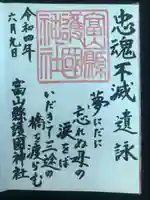 忠魂不滅 遺詠
夢にだに
忘れぬ母の
涙をば
いだきて三途の
橋を渡らむ
富山縣護國神社
令和四年
六月九日
富山縣護國神社